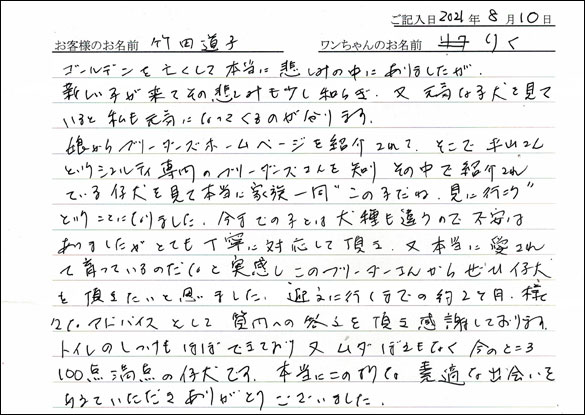 ご記入日 2021年 8月10日
お客様のお名前 竹田道子 ワンちゃんのお名前 りく
ゴールデンを亡くして本当に悲しみの中にありましたが、
新しい子が来てその悲しみも少し和らぎ、又元気な子犬を見て
いると私も元気になってくるのが分ります。
娘からブリーダーズホームページを紹介されて、そこで平山さん
というシェルティ専門のブリーダーズさんを知り その中で紹介され
ている仔犬を見て本当に家族一同"この子だね、見に行こう"
ということになりました。今までの子とは犬種も違うので不安は
ありましたがとても丁寧に対応して頂き、又本当に愛され
て育っているのだなと実感しこのブリーダーさんからぜひ仔犬
を頂きたいと思いました。迎えに行くまでの約2ケ月、様
々なアドバイスとして質問への答えを頂き感謝しております。
トイレのしつけもほぼできており 又ムダぼえもなく 今のところ
100点満点の仔犬です。本当にこの様な素適な出会いを
させていただき ありがとうございました。